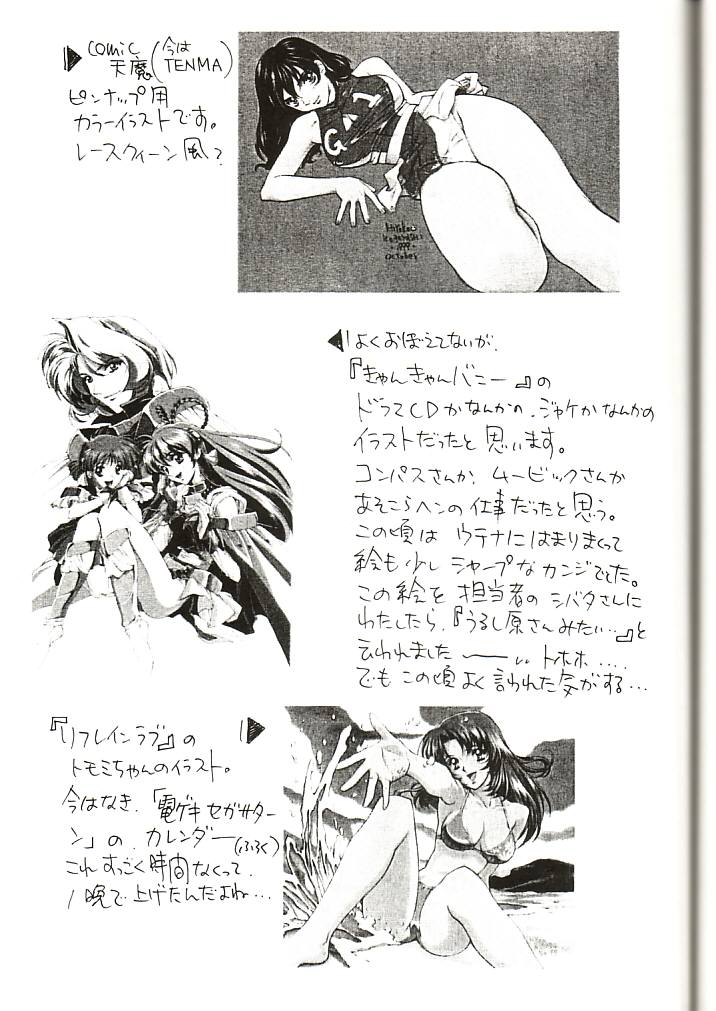 comic
天魔(今は
TENMA)
ピンナップ用
カラーイラストです。
レースクィーン風?
GAI
Hirokou
1999
october
よくおぼえてないが、
『きゃんきゃんバニー』の
ドラマCDかなんかの、ジャケかなんかの
イラストだったと思います。
コンパスさんか、ムービックさんか
あそこらヘンの仕事だったと思う。
この頃は ウテナにはまりまくって
絵も少し シャープなカンジでてた。
この絵を 担当者の シバタさんに
わたしたら、『うるし原さんみたい…』と
云われました〜〜い トホホ....
でもこの頃よく言われた気がする…
『リフレインラブ』の
トモミちゃんのイラスト。
今はなき、「電ゲキセガサター
ン」の カレンダー(ふろく)
これすっごく時間なくって、
1晩で上げたんだよね…